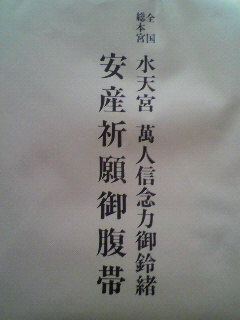 全国総本宮
水天宮 萬人信念力御鈴緒
安産祈願御腹帯